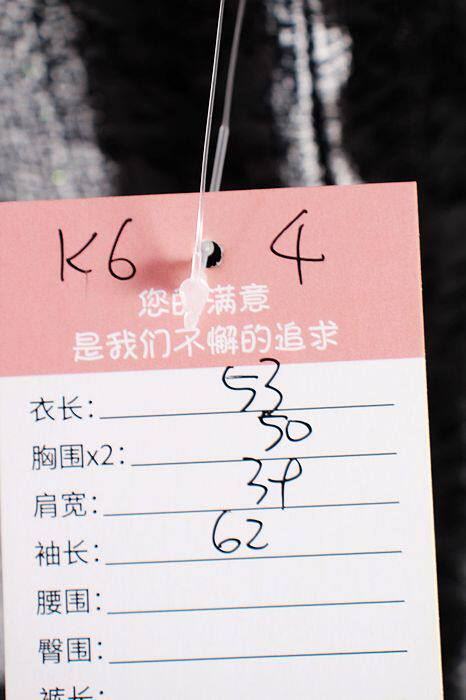 K6 4
您的满意
是我们不懈的追求
衣长: 53
胸围x2: 50
肩宽: 39
袖长: 62
腰围:
臀围:
裤长: